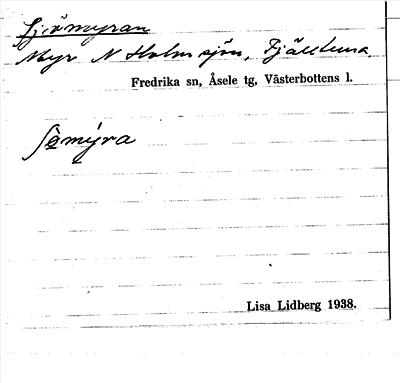 Sjömyran
Myr N Holmsjön, Fjälltuna.
Fredrika sn, Åsele tg, Västerbottens l.
Lisa Lidberg 1938.